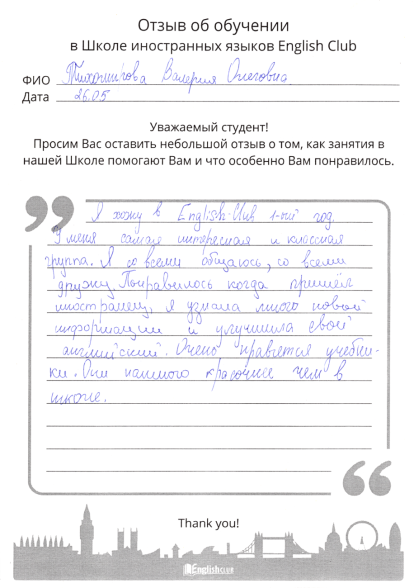 Отзыв об обучении
в Школе иностранных языков English Club
ФИО Тихомирова Валерия Олеговна
Дата 26.05
Уважаемый студент!
Просим Вас оставить небольшой отзыв о том, как занятия в
нашей Школе помогают Вам и что особенно Вам понравилось.
Я хожу в English Club 1-ый год.
У меня самая интересная и классная
группа. Я со всеми общаюсь, со всеми
дружу. Понравилось когда пришёл
иностранец. Я узнала много новой
информации и улучшила свой
английский. Очень нравятся учебни-
ки. Они намного красочнее чем в
школе.
Thank you!
English Club